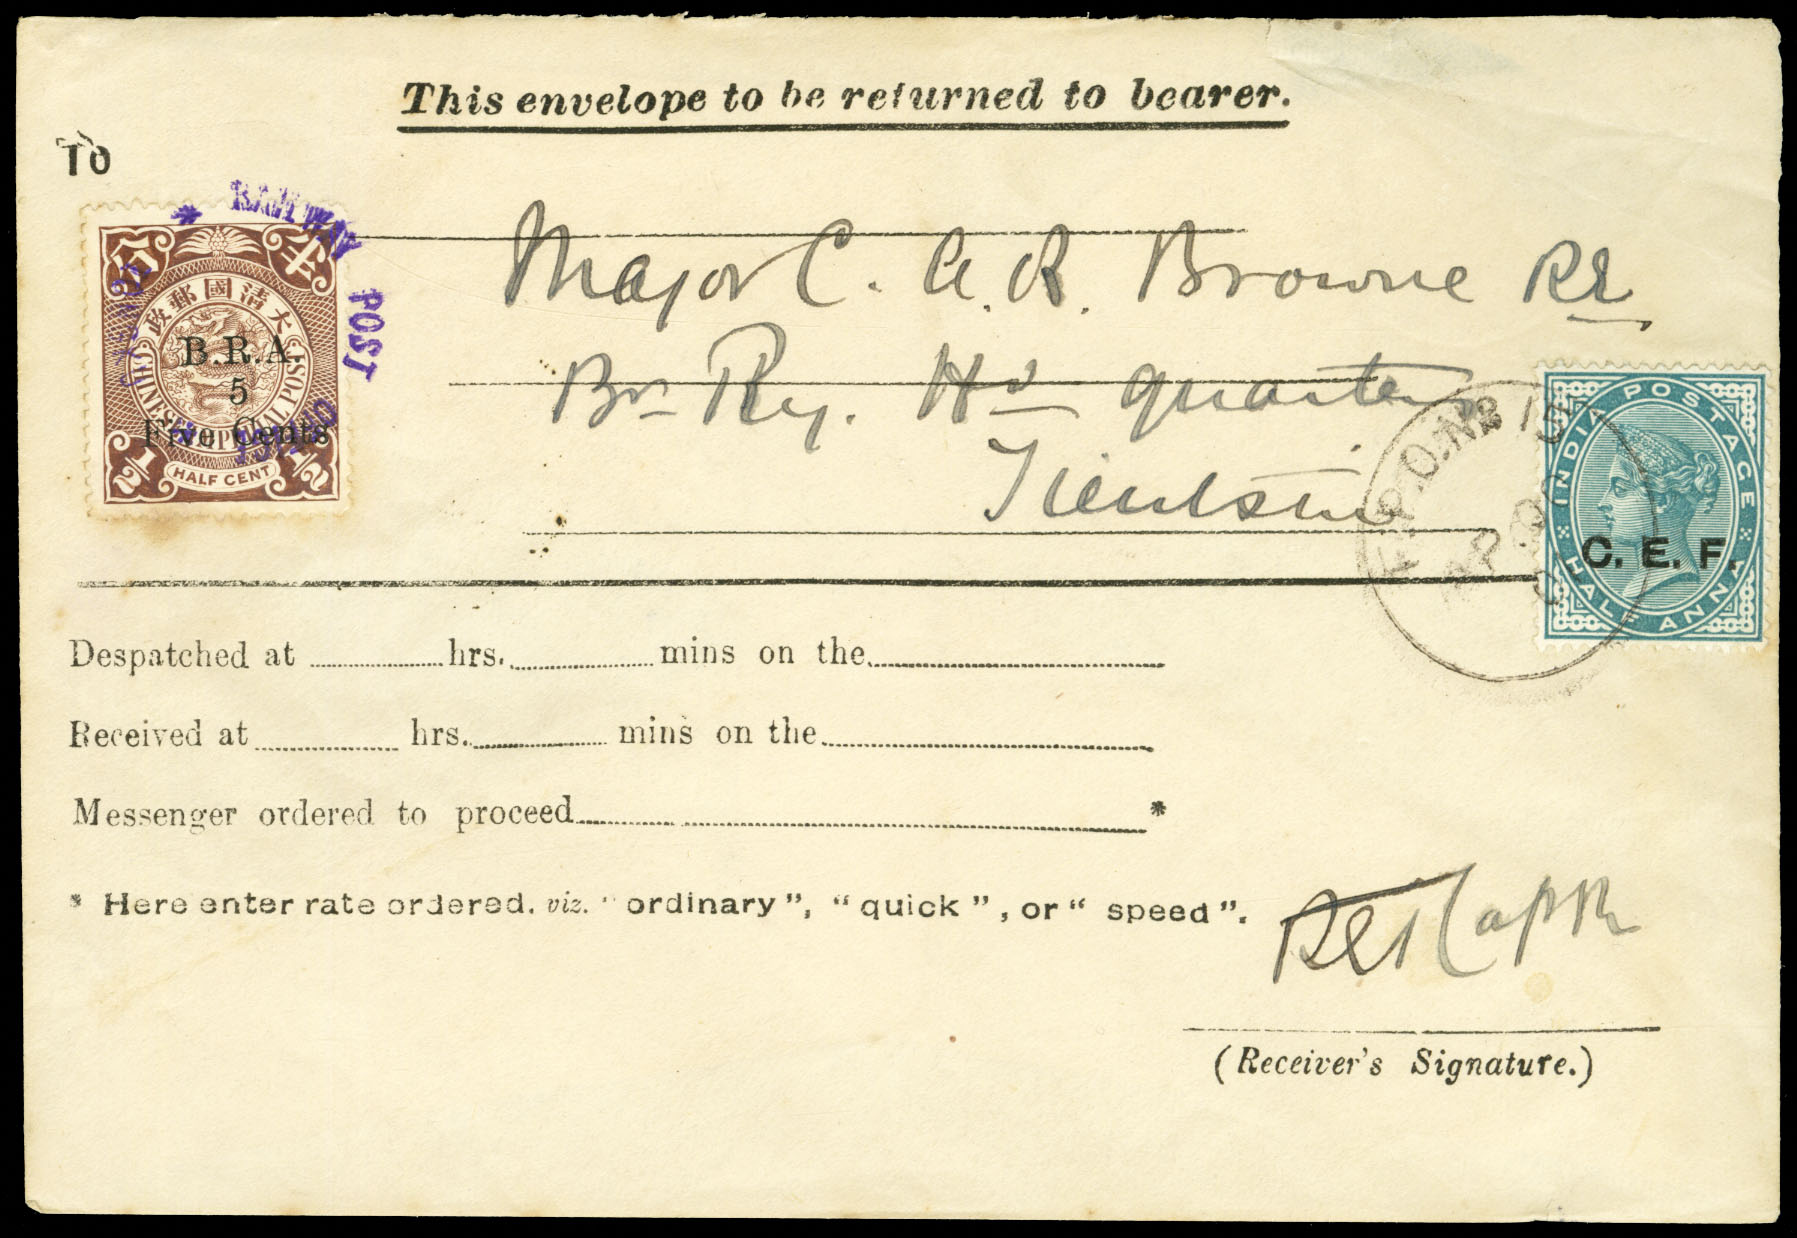 This envelope to be returned to bearer.
TO
Major C. A. R. Browne RE
Br Ry. Hd quarters
Tientsin
RAILWAY POST
大清國郵政
半分
CHINESE IMPERIAL POST
B.R.A.
5
Five Cents
1/2 HALF CENT 1/2
F.P.O. No 15
INDIA POSTAGE
C. E. F.
HALF ANNA
Despatched at hrs. mins on the
Received at hrs. mins on the
Messenger ordered to proceed *
* Here enter rate ordered. viz. "ordinary", "quick", or "speed".
(Receiver's Signature.)